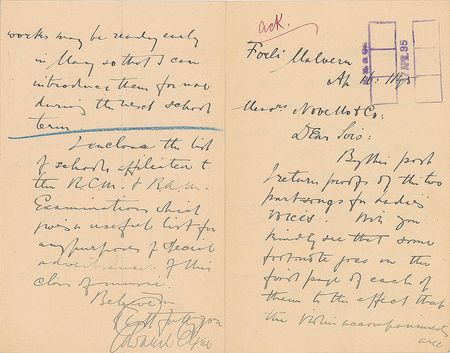 ack.
APR 95
Forli Malvern
Ap 1895
Messrs Novello & Co:
Dear Sirs:
By this post
I return proofs of the two
partsongs for Ladies'
voices. Will you
kindly see that some
footnote goes on the
first page of each of
them to the effect that
the Violin accompaniments
are
works may be ready early
in May so that I can
introduce them for use
during the next school
term.
I enclose the list
of schools affiliated to
the R.C.M. & R.A.M.
Examinations which
gives a useful list for
any purposes of special
advertisement of this
class of music.
Believe me
Faithfully yours
Edward Elgar